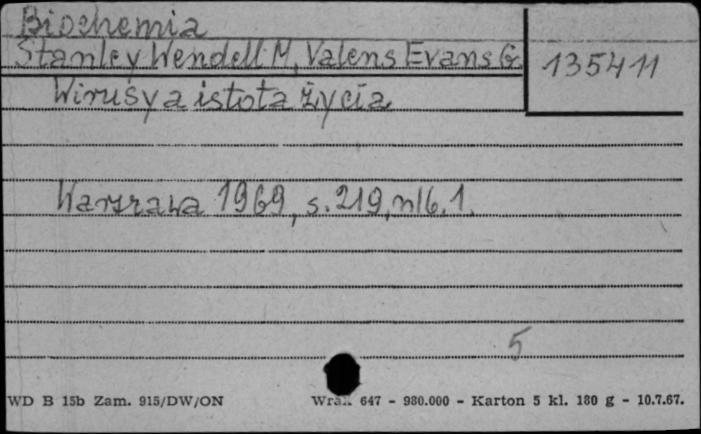 Biochemia
Stanley Wendell M, Valens Evans G.
135411
Wirusy a istota życia
Warszawa 1969, s. 219, nlb. 1.
5
WD B 15b Zam. 915/DW/ON
647 - 980.000 - Karton 5 kl. 180 g - 10.7.67.